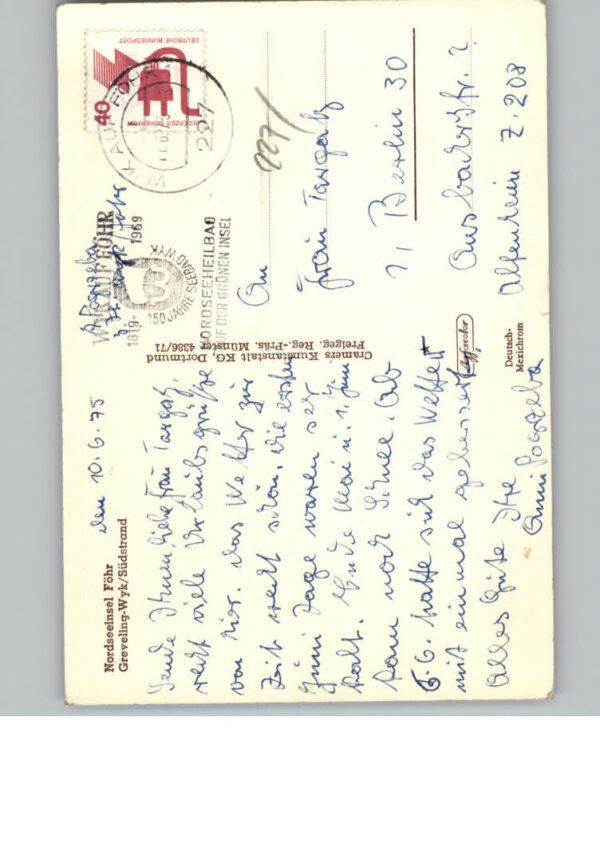 Nordseeinsel Föhr
Greveling-Wyk/Südstrand
den 10.6.75
Sende Ihnen liebe Frau Targatz,
recht viele Urlaubsgrüße
von hier. Das Wetter zur
Zeit recht schön, die ersten
Juni Tage waren ser
kalt. Ende Mai u. 1. Juni
kam noch Schnee. Ab
6.6. hatte sich das Wetter
mit einmal gebessert.
Alles Gute Ihre
Anni
Cramers Kunstanstalt KG, Dortmund
Freigeg. Reg.-Präs. Münster 4386/71
Deutsch-
Mexichrom
WYK AUF FÖHR
1819-1969
150 JAHRE SEEBAD WYK
NORDSEEHEILBAD
AUF DER GRÜNEN INSEL
WYK AUF FÖHR
227
DEUTSCHE BUNDESPOST
JEDERZEIT SICHERHEIT
40
227/
An
Frau Targatz
1, Berlin 30
Ansbacherstr. 2
Altenheim Z. 208